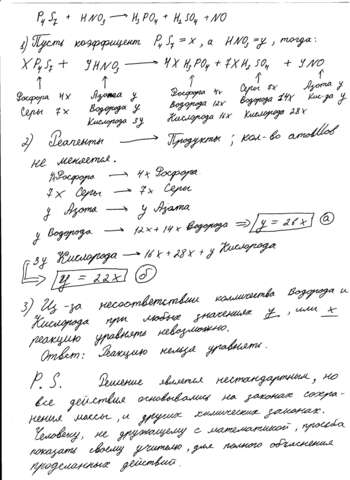 P₄S₇ + HNO₃ → H₃PO₄ + H₂SO₄ + NO
1) Пусть коэффицент P₄S₇ = x, а HNO₃ = y, тогда:
XP₄S₇ + yHNO₃ → 4XH₃PO₄ + 7XH₂SO₄ + yNO
Фосфора 4x Азота y Фосфора 4x Серы 7x Азота y
Серы 7x Водорода y Водорода 12x Водорода 14x Кис-да y
Кислорода 3y Кислорода 16x Кислорода 28x
2) Реагенты → Продукты; кол-во атомов
не меняется.
4xФосфора → 4x Фосфора
7x Серы → 7x Серы
y Азота → y Азота
y Водорода → 12x+14x Водорода ⇒ y = 26x а
3y Кислорода → 16x+28x+y Кислорода
y = 22x б
3) Из-за несоответствия колличества Водорода и
Кислорода при любых значениях y, или x
реакцию уравнять невозможно.
Ответ: Реакцию нельзя уравнять.
P.S. Решение является нестандартным, но
все действия основывались на законах сохра-
нения массы, и других химических законах.
Человеку, не дружащему с математикой, просьба
показать своему учителю, для полного объяснения
проделанных действий.